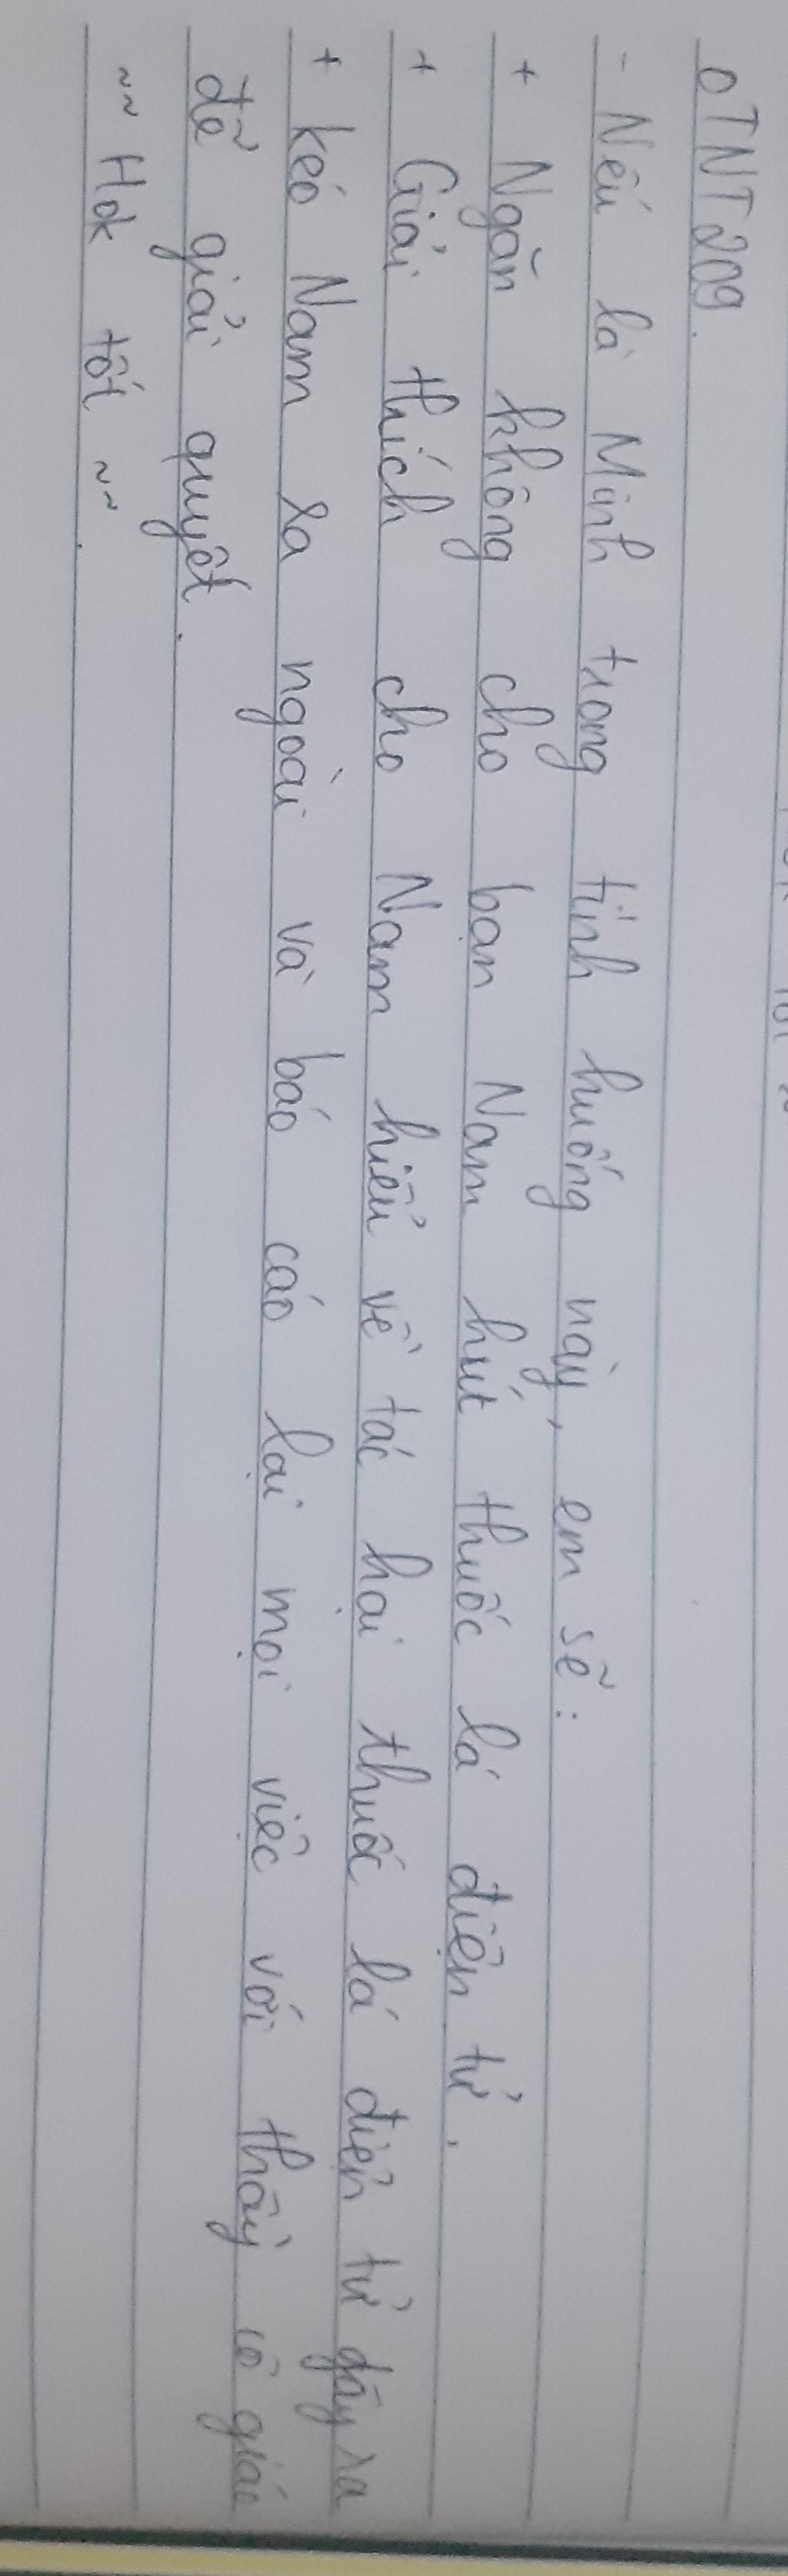 oTNT209.
- Nếu là Minh trong tình huống này, em sẽ:
+ Ngăn không cho bạn Nam hút thuốc lá điện tử.
+ Giải thích cho Nam hiểu về tác hại thuốc lá điện tử gây ra
+ kéo Nam ra ngoài và báo cáo lại mọi việc với thầy cô giáo
để giải quyết.
~~ Hok tốt ~~.